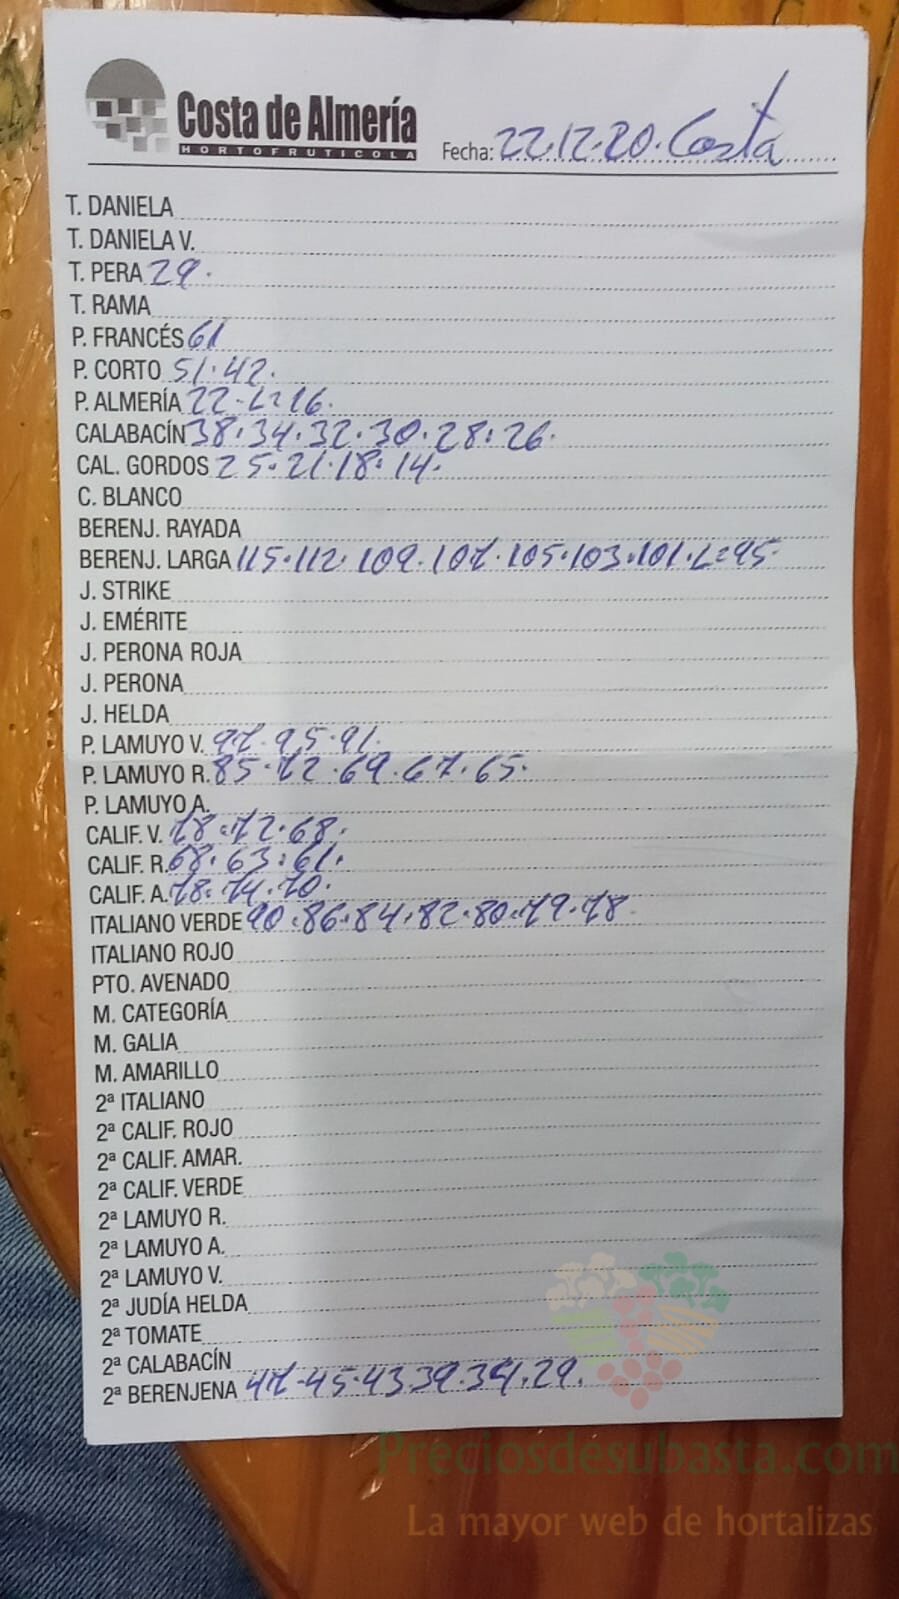 Costa de Almería
HORTOFRUTICOLA
Fecha: 22.12.20. Costa
T. DANIELA
T. DANIELA V.
T. PERA 29.
T. RAMA
P. FRANCÉS 61
P. CORTO 51.42.
P. ALMERÍA 22.L=16.
CALABACÍN 38.34.32.30.28.26.
CAL. GORDOS 25.21.18.14.
C. BLANCO
BERENJ. RAYADA
BERENJ. LARGA 115.112.109.107.105.103.101.L=95
J. STRIKE
J. EMÉRITE
J. PERONA ROJA
J. PERONA
J. HELDA
P. LAMUYO V. 97.95.91.
P. LAMUYO R. 85.72.69.67.65.
P. LAMUYO A.
CALIF. V. 78.72.68.
CALIF. R. 68.63.61.
CALIF. A. 78.74.70.
ITALIANO VERDE 90.86.84.82.80.79.78
ITALIANO ROJO
PTO. AVENADO
M. CATEGORÍA
M. GALIA
M. AMARILLO
2ª ITALIANO
2ª CALIF. ROJO
2ª CALIF. AMAR.
2ª CALIF. VERDE
2ª LAMUYO R.
2ª LAMUYO A.
2ª LAMUYO V.
2ª JUDÍA HELDA
2ª TOMATE
2ª CALABACÍN
2ª BERENJENA 47.45.43.39.34.29.
Preciosdesubasta.com
La mayor web de hortalizas